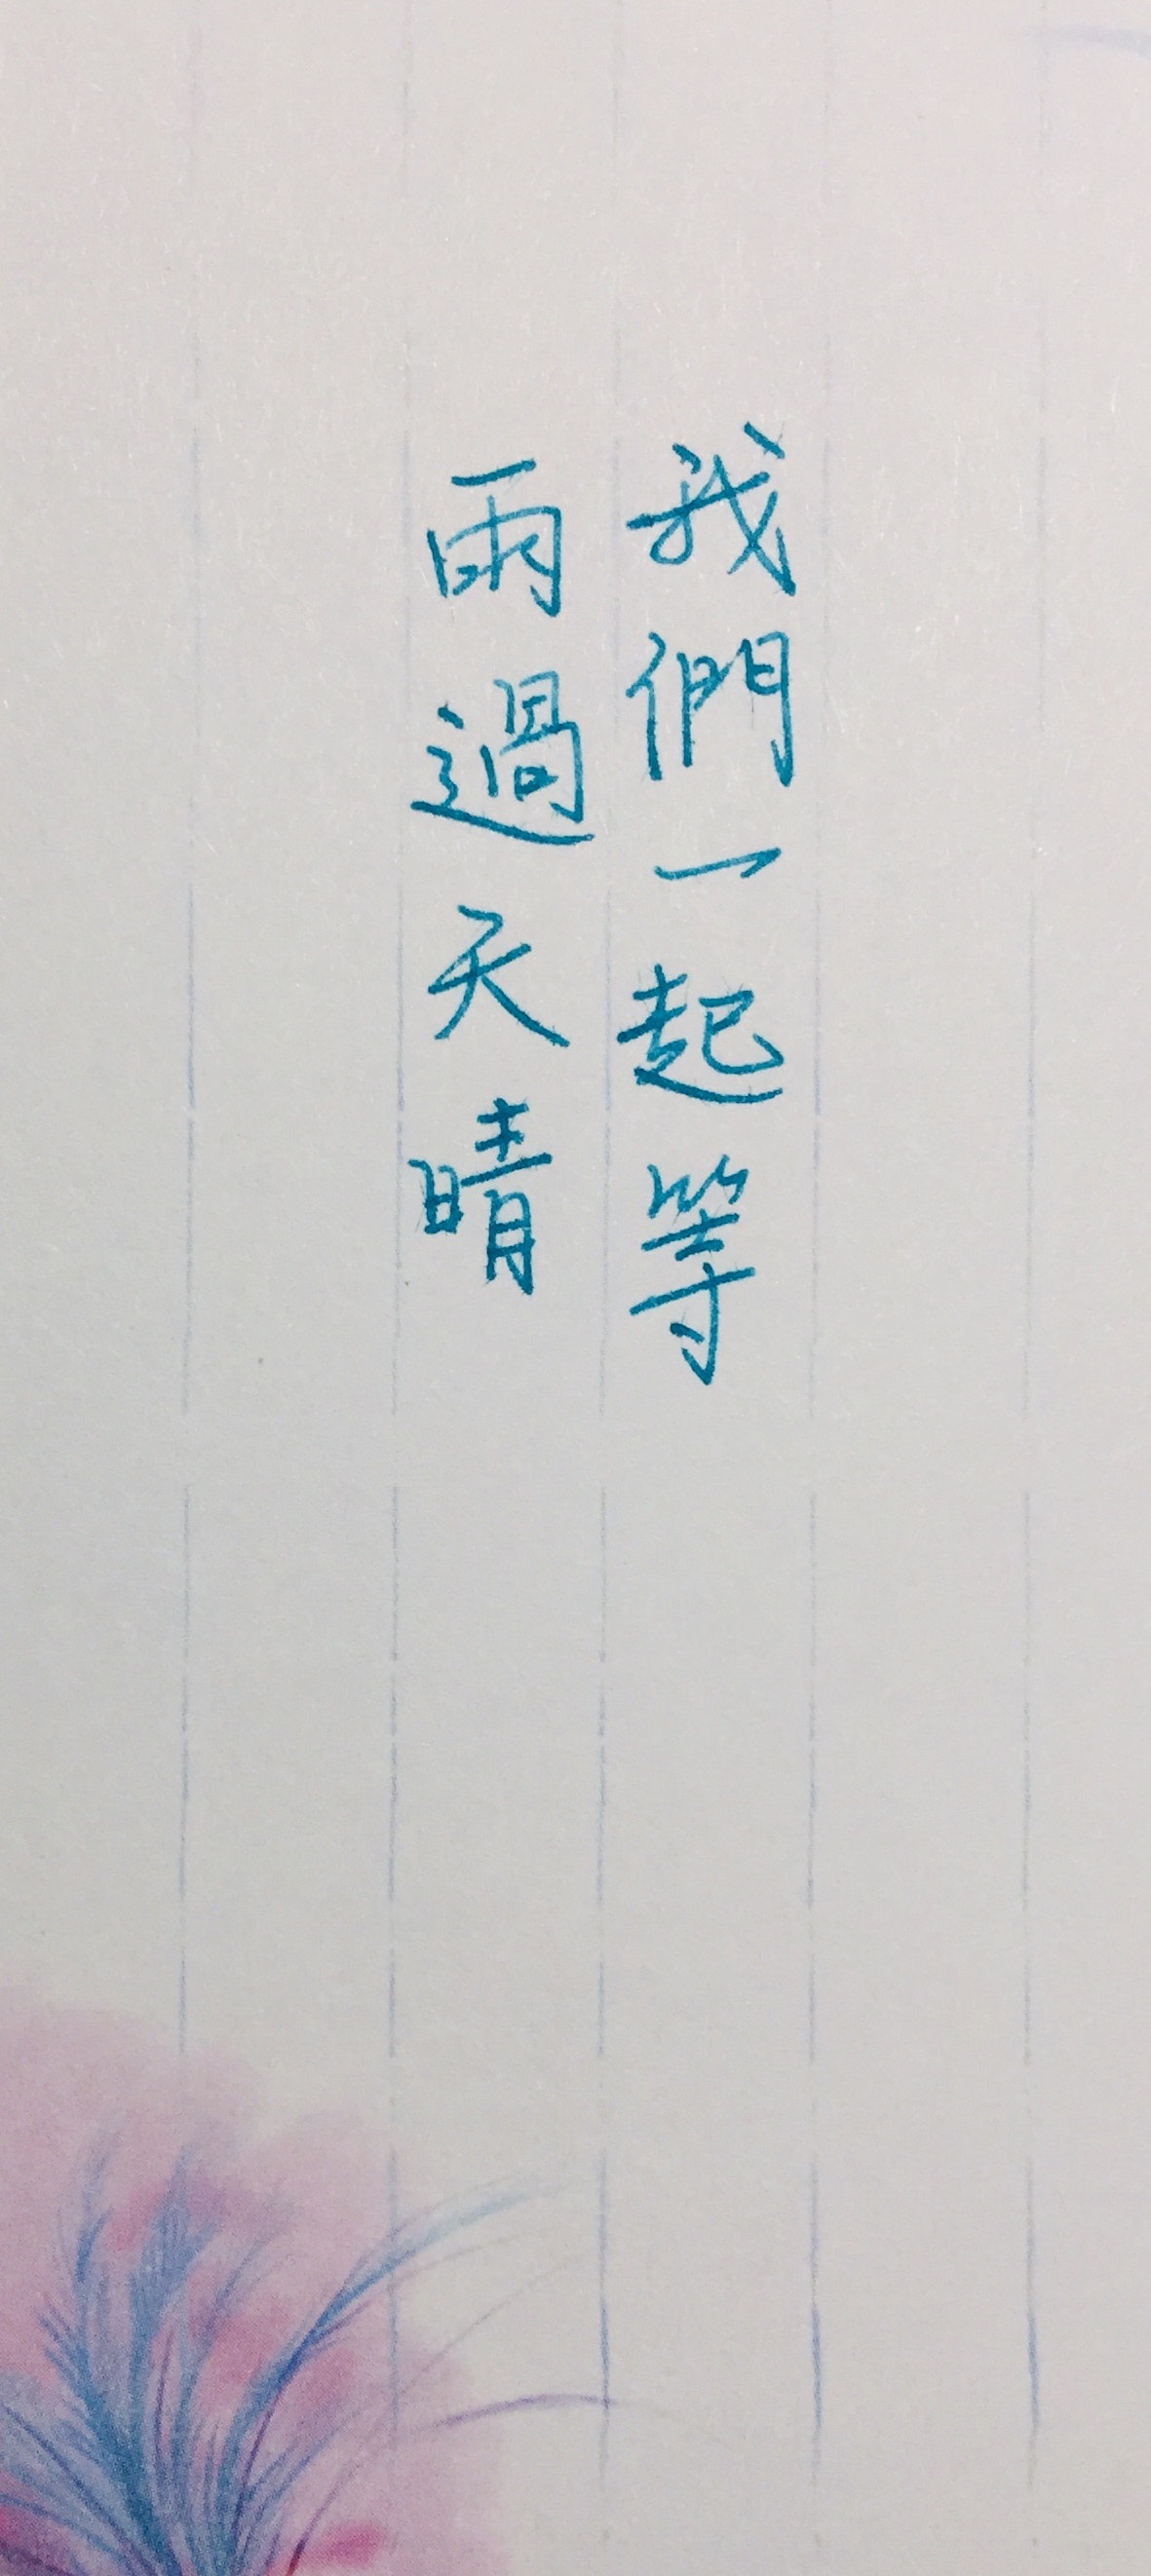 我們一起等
雨過天晴